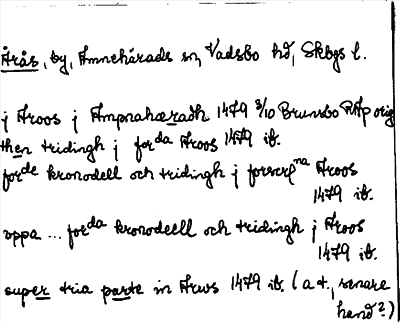 Årås, by, Amnehärads sn, Vadsbo hd, Skbgs l.
j Aroos j Ampnahæradh 1479 3/10 Brunsbo RAp orig
then tridingh j forda Aroos 1479 ib.
forde kronodell och tridingh j forscrfna Aroos
1479 ib.
oppa ... forda kronodeell och tridingh j Aroos
1479 ib.
super tria parte in Arws 1479 ib. (a t., senare
hand?)